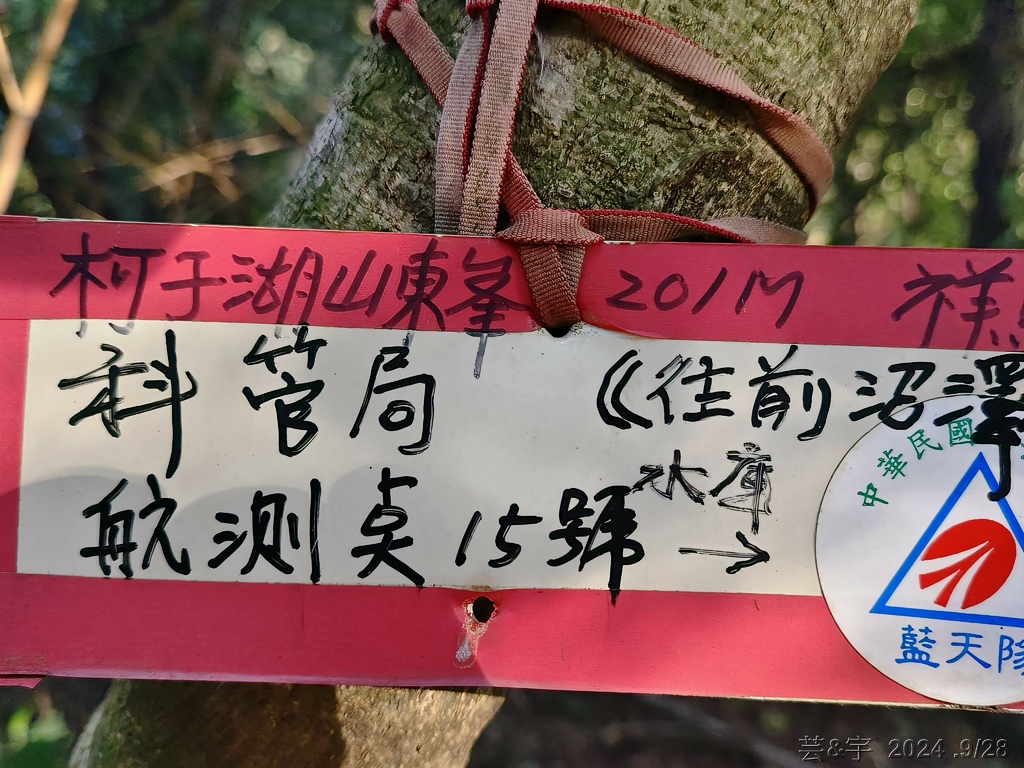 柯子湖山東峯 201M 祥
科管局 《往前沼澤
水庫
航測点15號 →
中華民國
藍天隊
芸&宇 2024.9/28